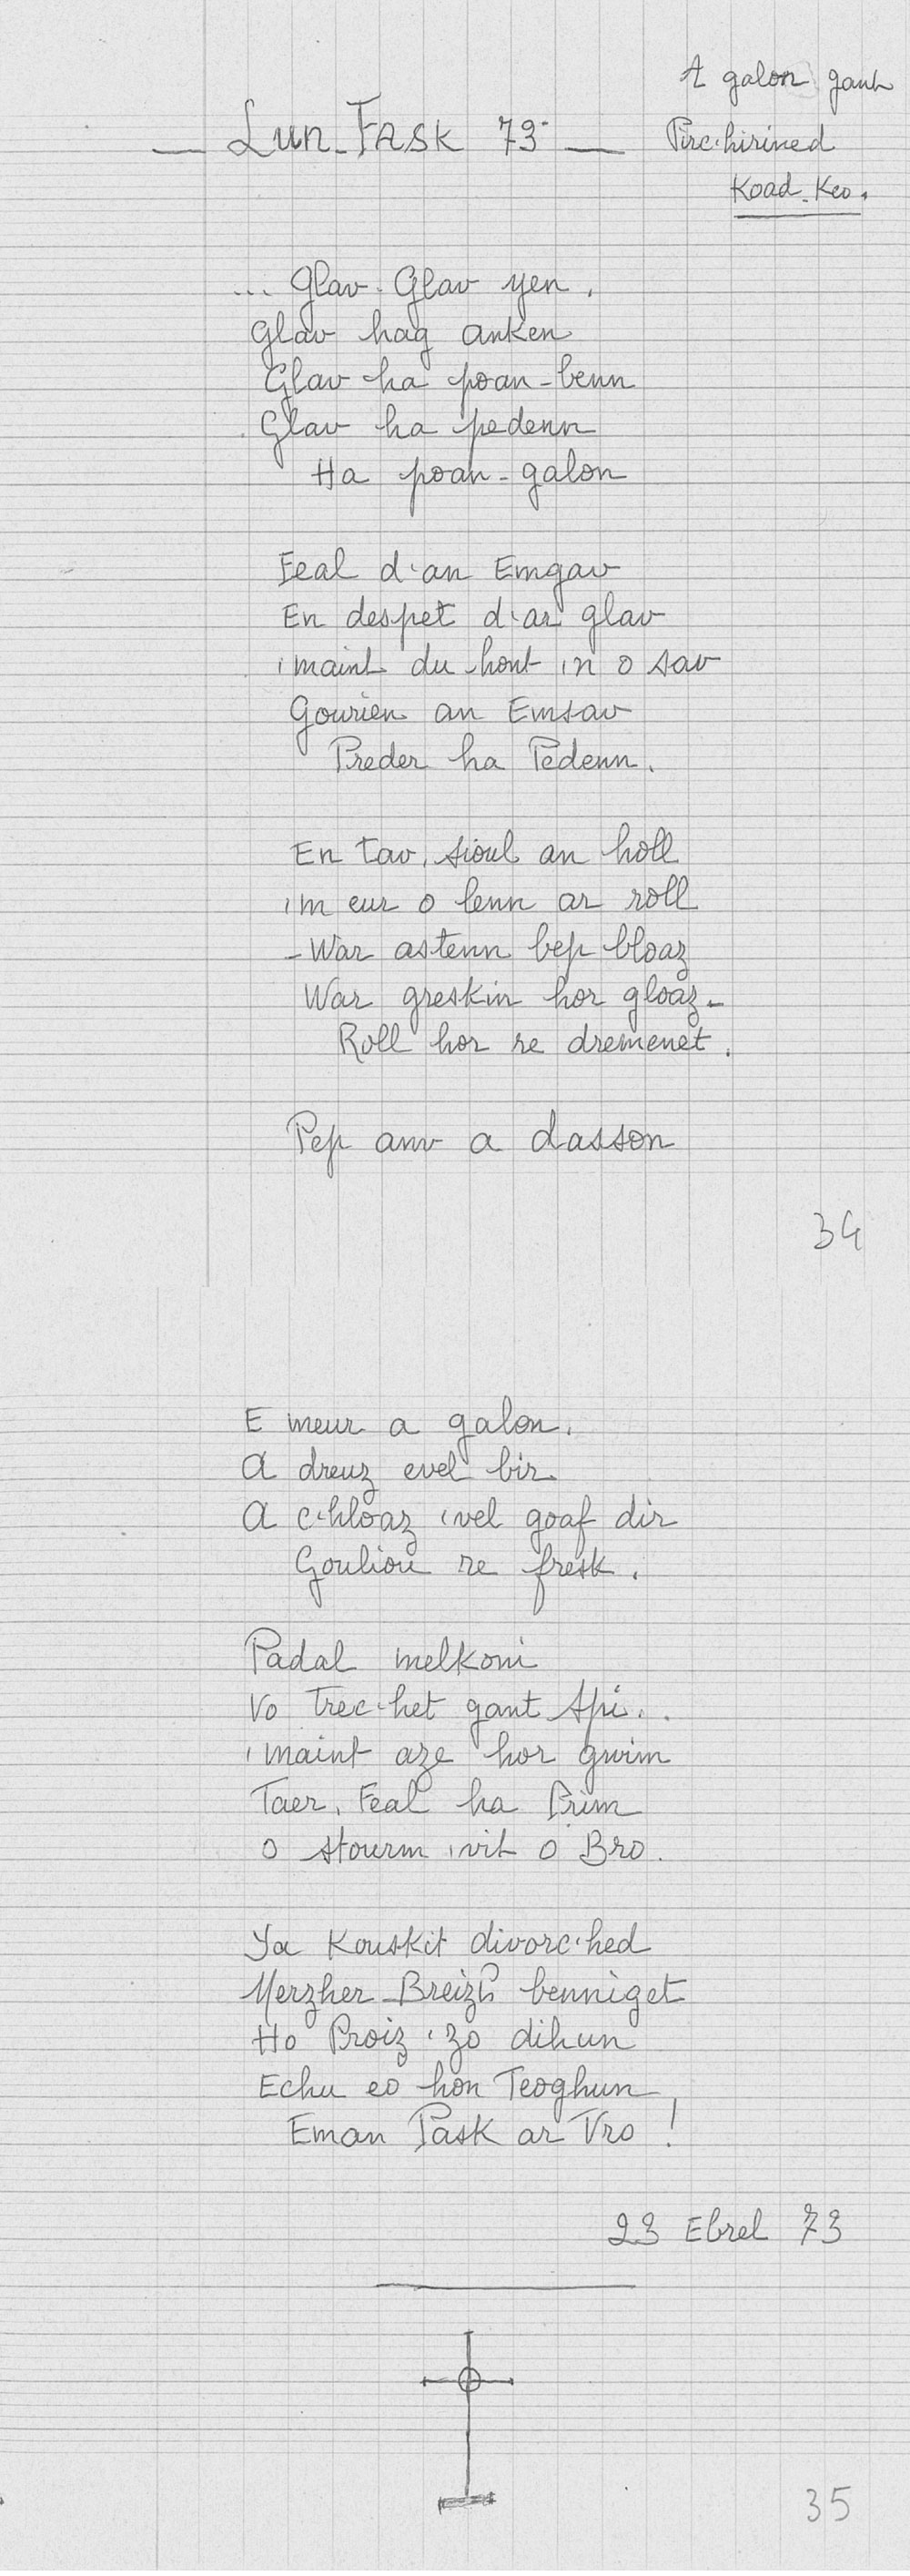 A galon gant
Pirc'hirined
Koad-Keo.
— Lun-Fask 73 —
... Glav. Glav yen.
Glav hag anken
Glav ha poan-benn
Glav ha pedenn
Ha poan-galon
Feal d'an Emgav
En despet d'ar glav
'maint du-hont 'n o sav
Gourien an Emsav
Preder ha Pedenn.
En tav, sioul an holl
'm eur o lenn ar roll
- War astenn bep bloaz
War greskin hor gloaz -
Roll hor re dremenet.
Pep anv a dasson
34
E meur a galon.
A dreuz evel bir
A c'hloaz 'vel goaf dir
Gouliou re fresk.
Padal melkoni
Vo Trec'het gant spi..
'maint aze hor gwim
Taer, Feal ha Prim
O stourm 'vit o Bro.
Ya Kouskit divorc'hed
Merzher-Breizh benniget
Ho Proiz 'zo dihun
Echu eo hon Teoghun
Eman Pask ar Vro !
23 Ebrel 73
35